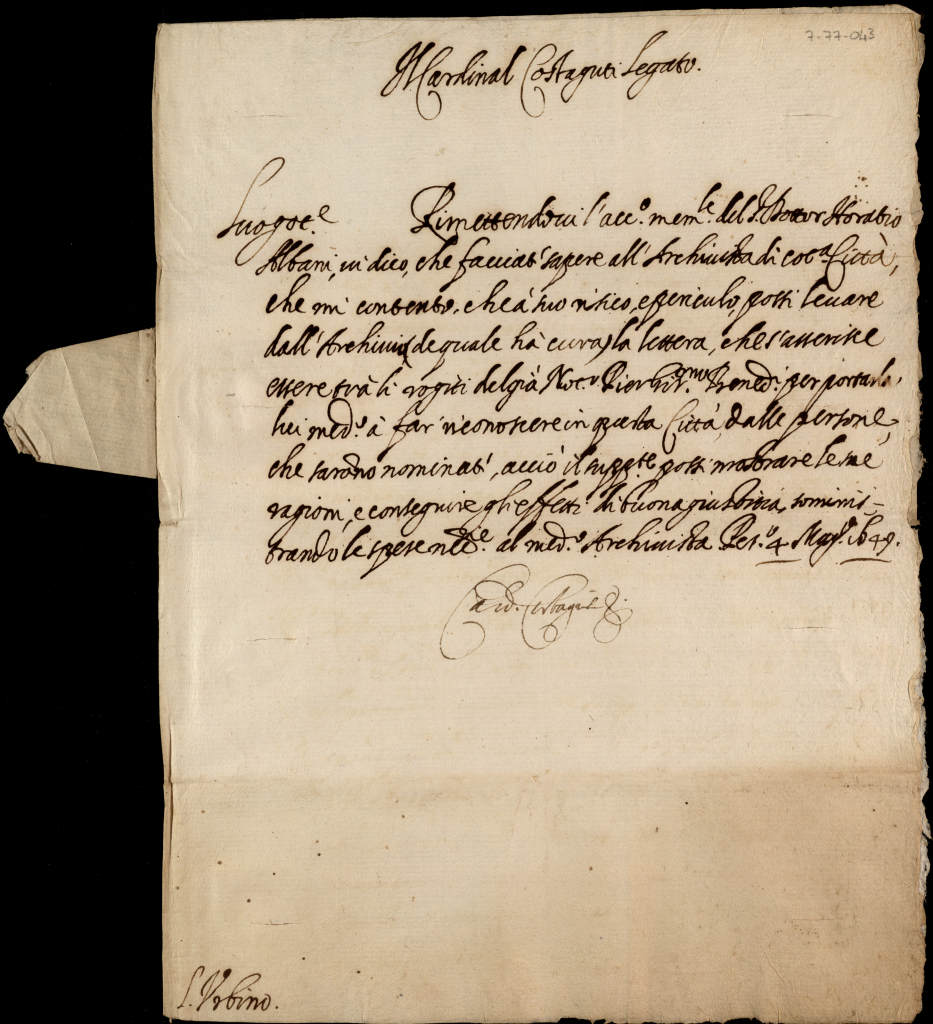 7-77-043
Il Cardinal Costaguti Legato.
Luogot.e Rimettendovi l'acc.o mem.le del S.r Dottor Horatio
Albani, vi dico, che facciate sapere all'Archivista di cot.a Città,
che mi contento, che à suo risico, e periculo, possi levare
dall'Archivio (de quale hà cura) la lettera, che s'asserisce
essere trà li rogiti del già Not.o Pier hir.mo Bened.i per portarla
lui med.o à far riconoscere in questa Città, dalle persone,
che sarano nominate, acciò il supp.te possi mostrare le sue
ragioni, e conseguire gli effetti di buona giustitia, sominis-
trando le spese nec.e al med.o Archivista. Pes.o 4 Mag.o 1649.
Card. Costaguti
S. Urbino.